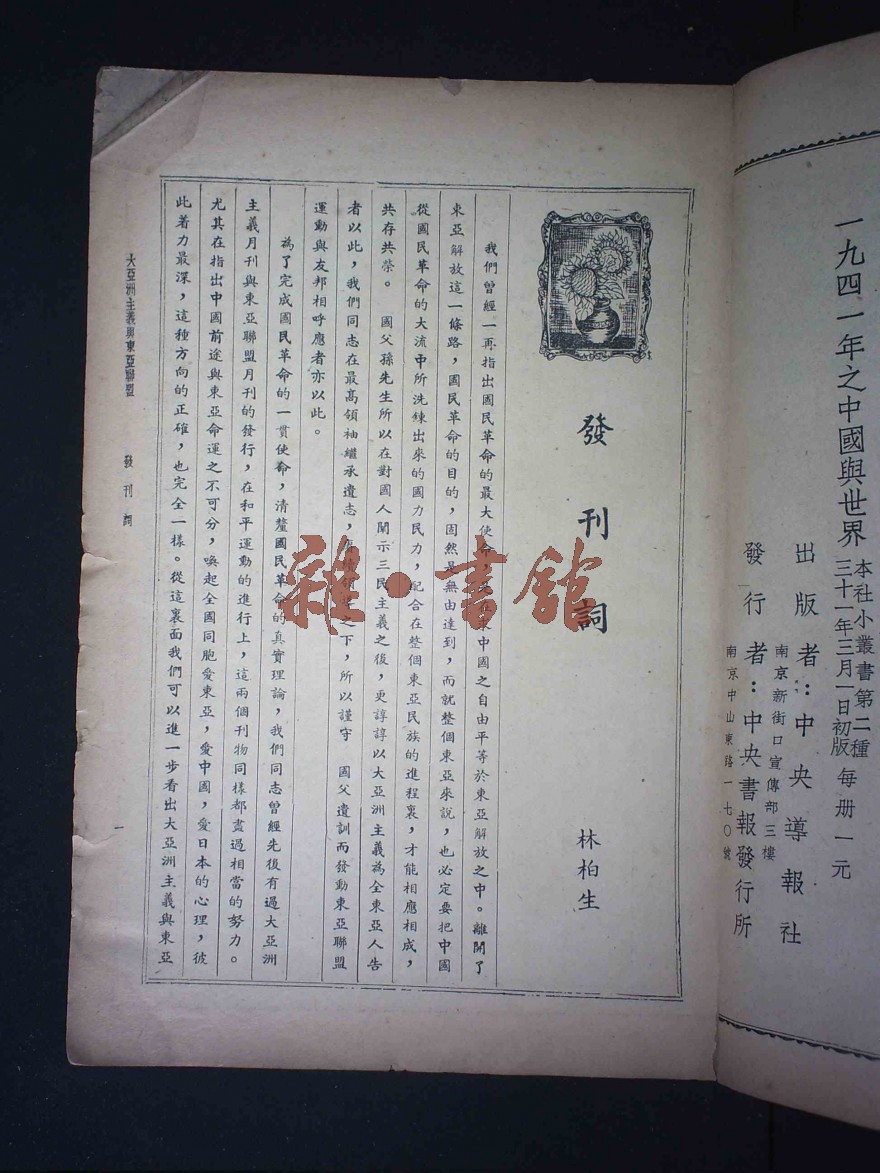 一九四一年之中國與世界
本社小叢書第二種
三十一年三月一日初版
每册一元
出版者：中央導報社
南京新街口宣傳部三樓
發行者：中央書報發行所
南京中山東路一七〇號
發刊詞
林柏生
我們曾經一再指出國民革命的最大使命，中國之自由平等於東亞解放之中。離開了
東亞解放這一條路，國民革命的目的，固然是無由達到，而就整個東亞來說，也必定要把中國
從國民革命的大流中所洗鍊出來的國力民力，配合在整個東亞民族的進程裏，才能相應相成，
共存共榮。　國父孫先生所以在對國人闡示三民主義之後，更諄諄以大亞洲主義為全東亞人告
者以此，我們同志在最高領袖繼承遺志，之下，所以謹守　國父遺訓而發動東亞聯盟
運動與友邦相呼應者亦以此。
為了完成國民革命的一貫使命，清釐國民革命的真實理論，我們同志曾經先後有過大亞洲
主義月刊與東亞聯盟月刊的發行，在和平運動的進行上，這兩個刊物同樣都盡過相當的努力。
尤其在指出中國前途與東亞命運之不可分，喚起全國同胞愛東亞，愛中國，愛日本的心理，彼
此着力最深，這種方向的正確，也完全一樣。從這裏面我們可以進一步看出大亞洲主義與東亞
大亞洲主義與東亞聯盟　發刊詞
一
雜·書館